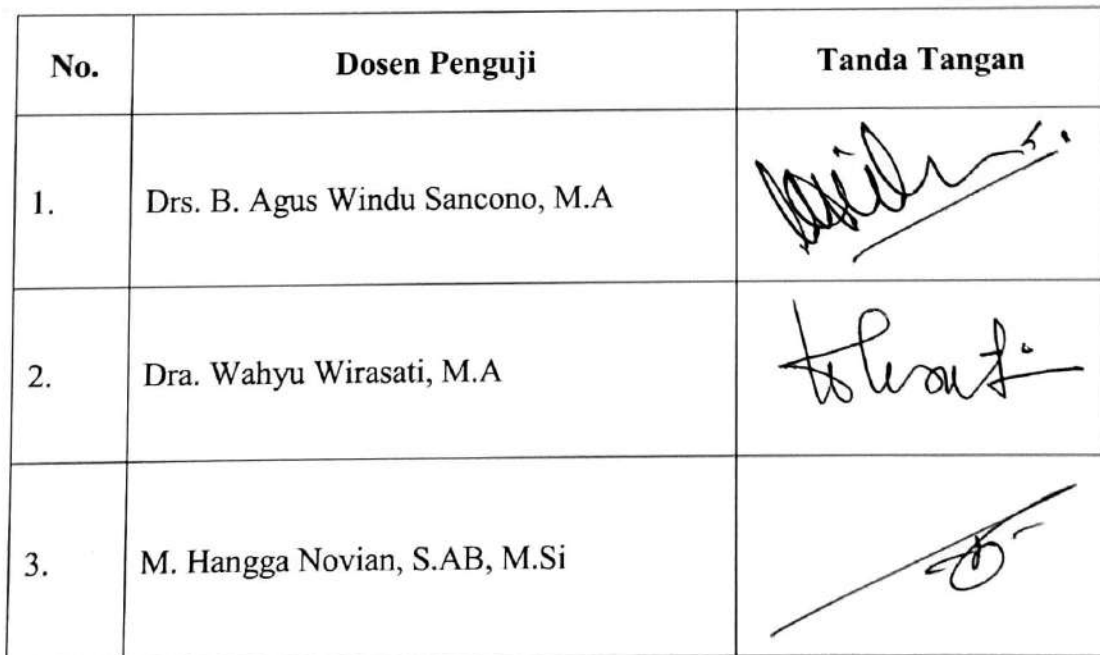 No. Dosen Penguji Tanda Tangan
1. Drs. B. Agus Windu Sancono, M.A
2. Dra. Wahyu Wirasati, M.A
3. M. Hangga Novian, S.AB, M.Si